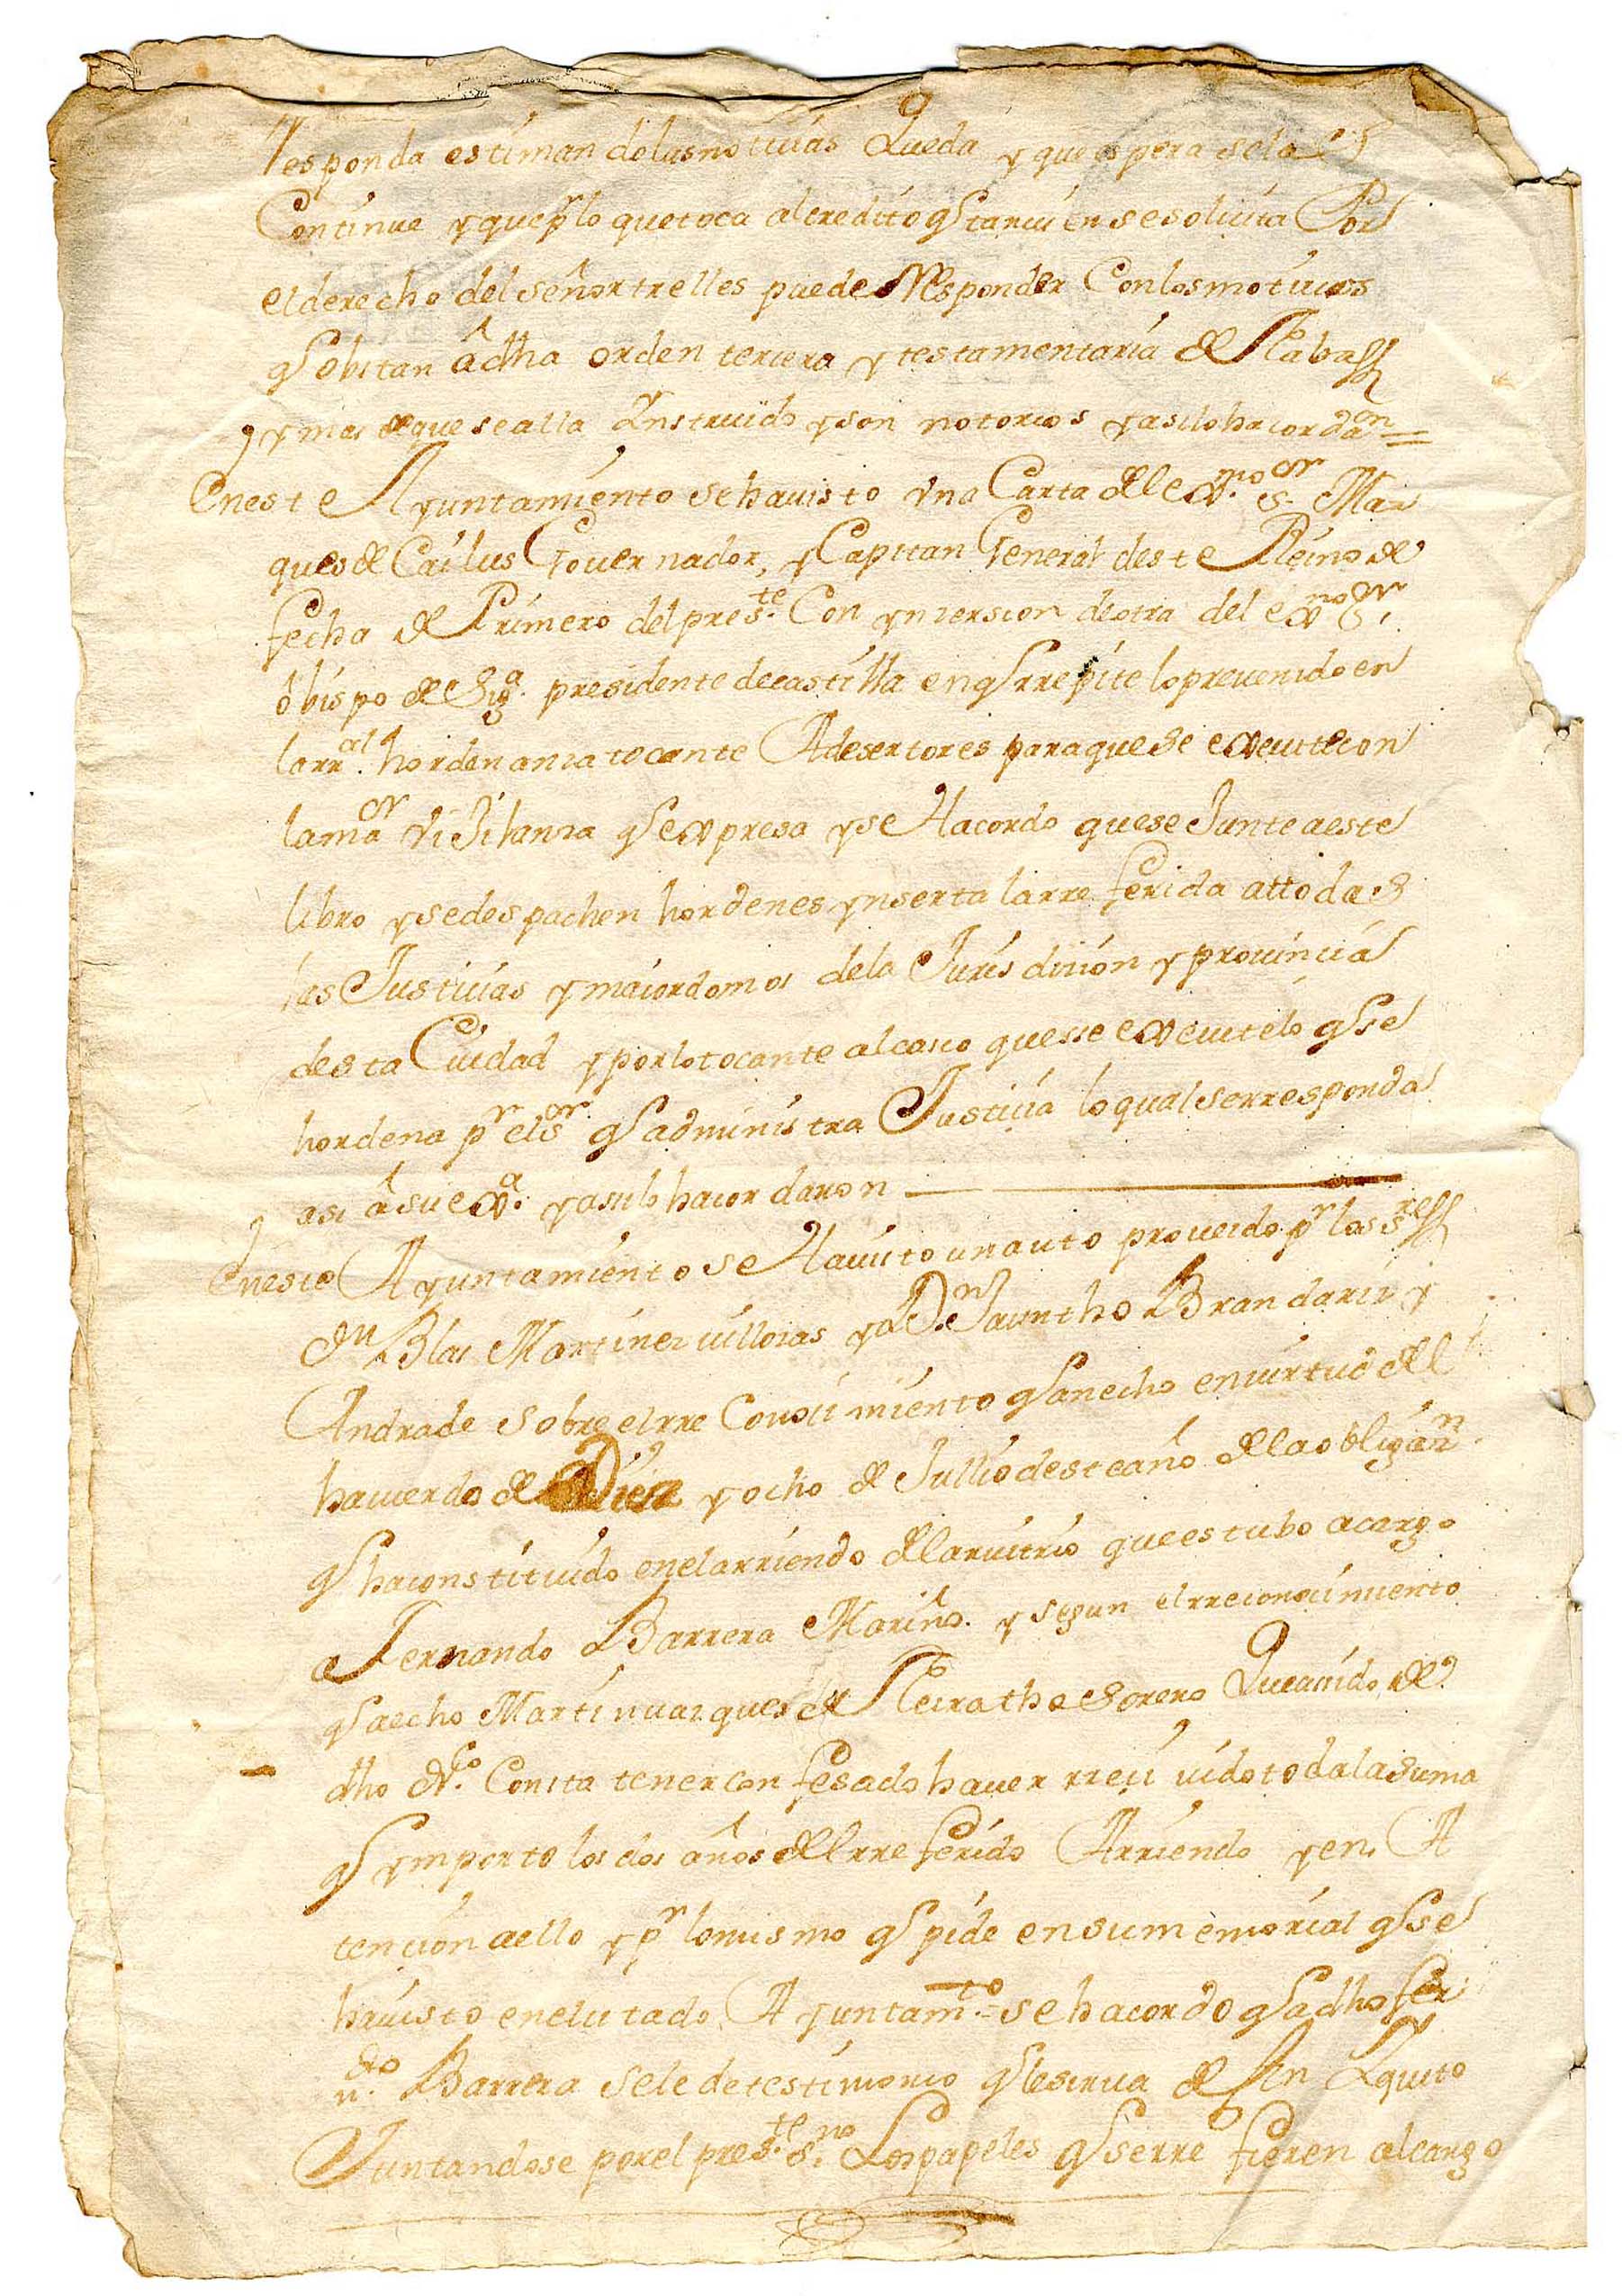 responda estiman de las noticias Queda y que espera se la
Continue y que pr lo que toca al credito q tanvien se solicita Por
el derecho del señor trelles puede Responder Con los motivos
q obstan â dha orden tercera y testamentaria de
y mas de que se alla Ynstruido y son notorios y asi lo hacordaon =
En este Ayuntamiento se ha visto Vna Carta del exmo sor Mar
ques de Cailus Governador, y Capitan General deste Reino de
fecha de Primero del preste Con ynsercion de otra del exmo Sr
obispo de Siga. presidente de castilla en q rrepite lo prevenido en
la rral hordenanza tocante A desertores para que se execute con
la maor vijilanza q expresa y se Hacordo que se Junte a este
libro y se despachen hordenes ynserta la rreferida a ttodas
las Justicias y maiordomos de la Jurisdicion y provincia
desta Ciudad y por lo tocante al casco que sse execute lo q se
hordena pr el sor q administra Justicia lo qual se rresponda
asi â su exa. y asi lo hacordaron
En este Ayuntamiento se Ha visto un auto proveido pr los sres
Dn Blas Martinez villozas y a Dn Jacintho Brandariz y
Andrade sobre el rreConocimiento q an echo en virtud del
hacuerdo de Diez y ocho de Jullio deste año de la obligazn
q ha constituido en el arriendo del arvitrio que estubo a cargo
Fernando Barrera Mariño. y segun el rreconocimiento
q a echo Martin vazquez de Neira thesorero Que a sido de
dho Consta tener confesado haver rrecivido toda la suma
q ymporto los dos años del rreferido Arriendo y en A
tencion a ello y pr lo mismo q pide en su memorial q se
ha visto en el citado Ayuntamto = se hacordo q a dho fer
ndo Barrera se le de testimonio q le sirva de fin Yquito
Juntandose por el preste sno Los papeles q se rrefieren al cargo